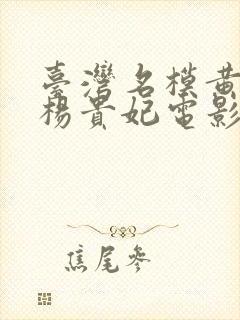 臺灣名模黃
楊貴妃電影
焦尾參